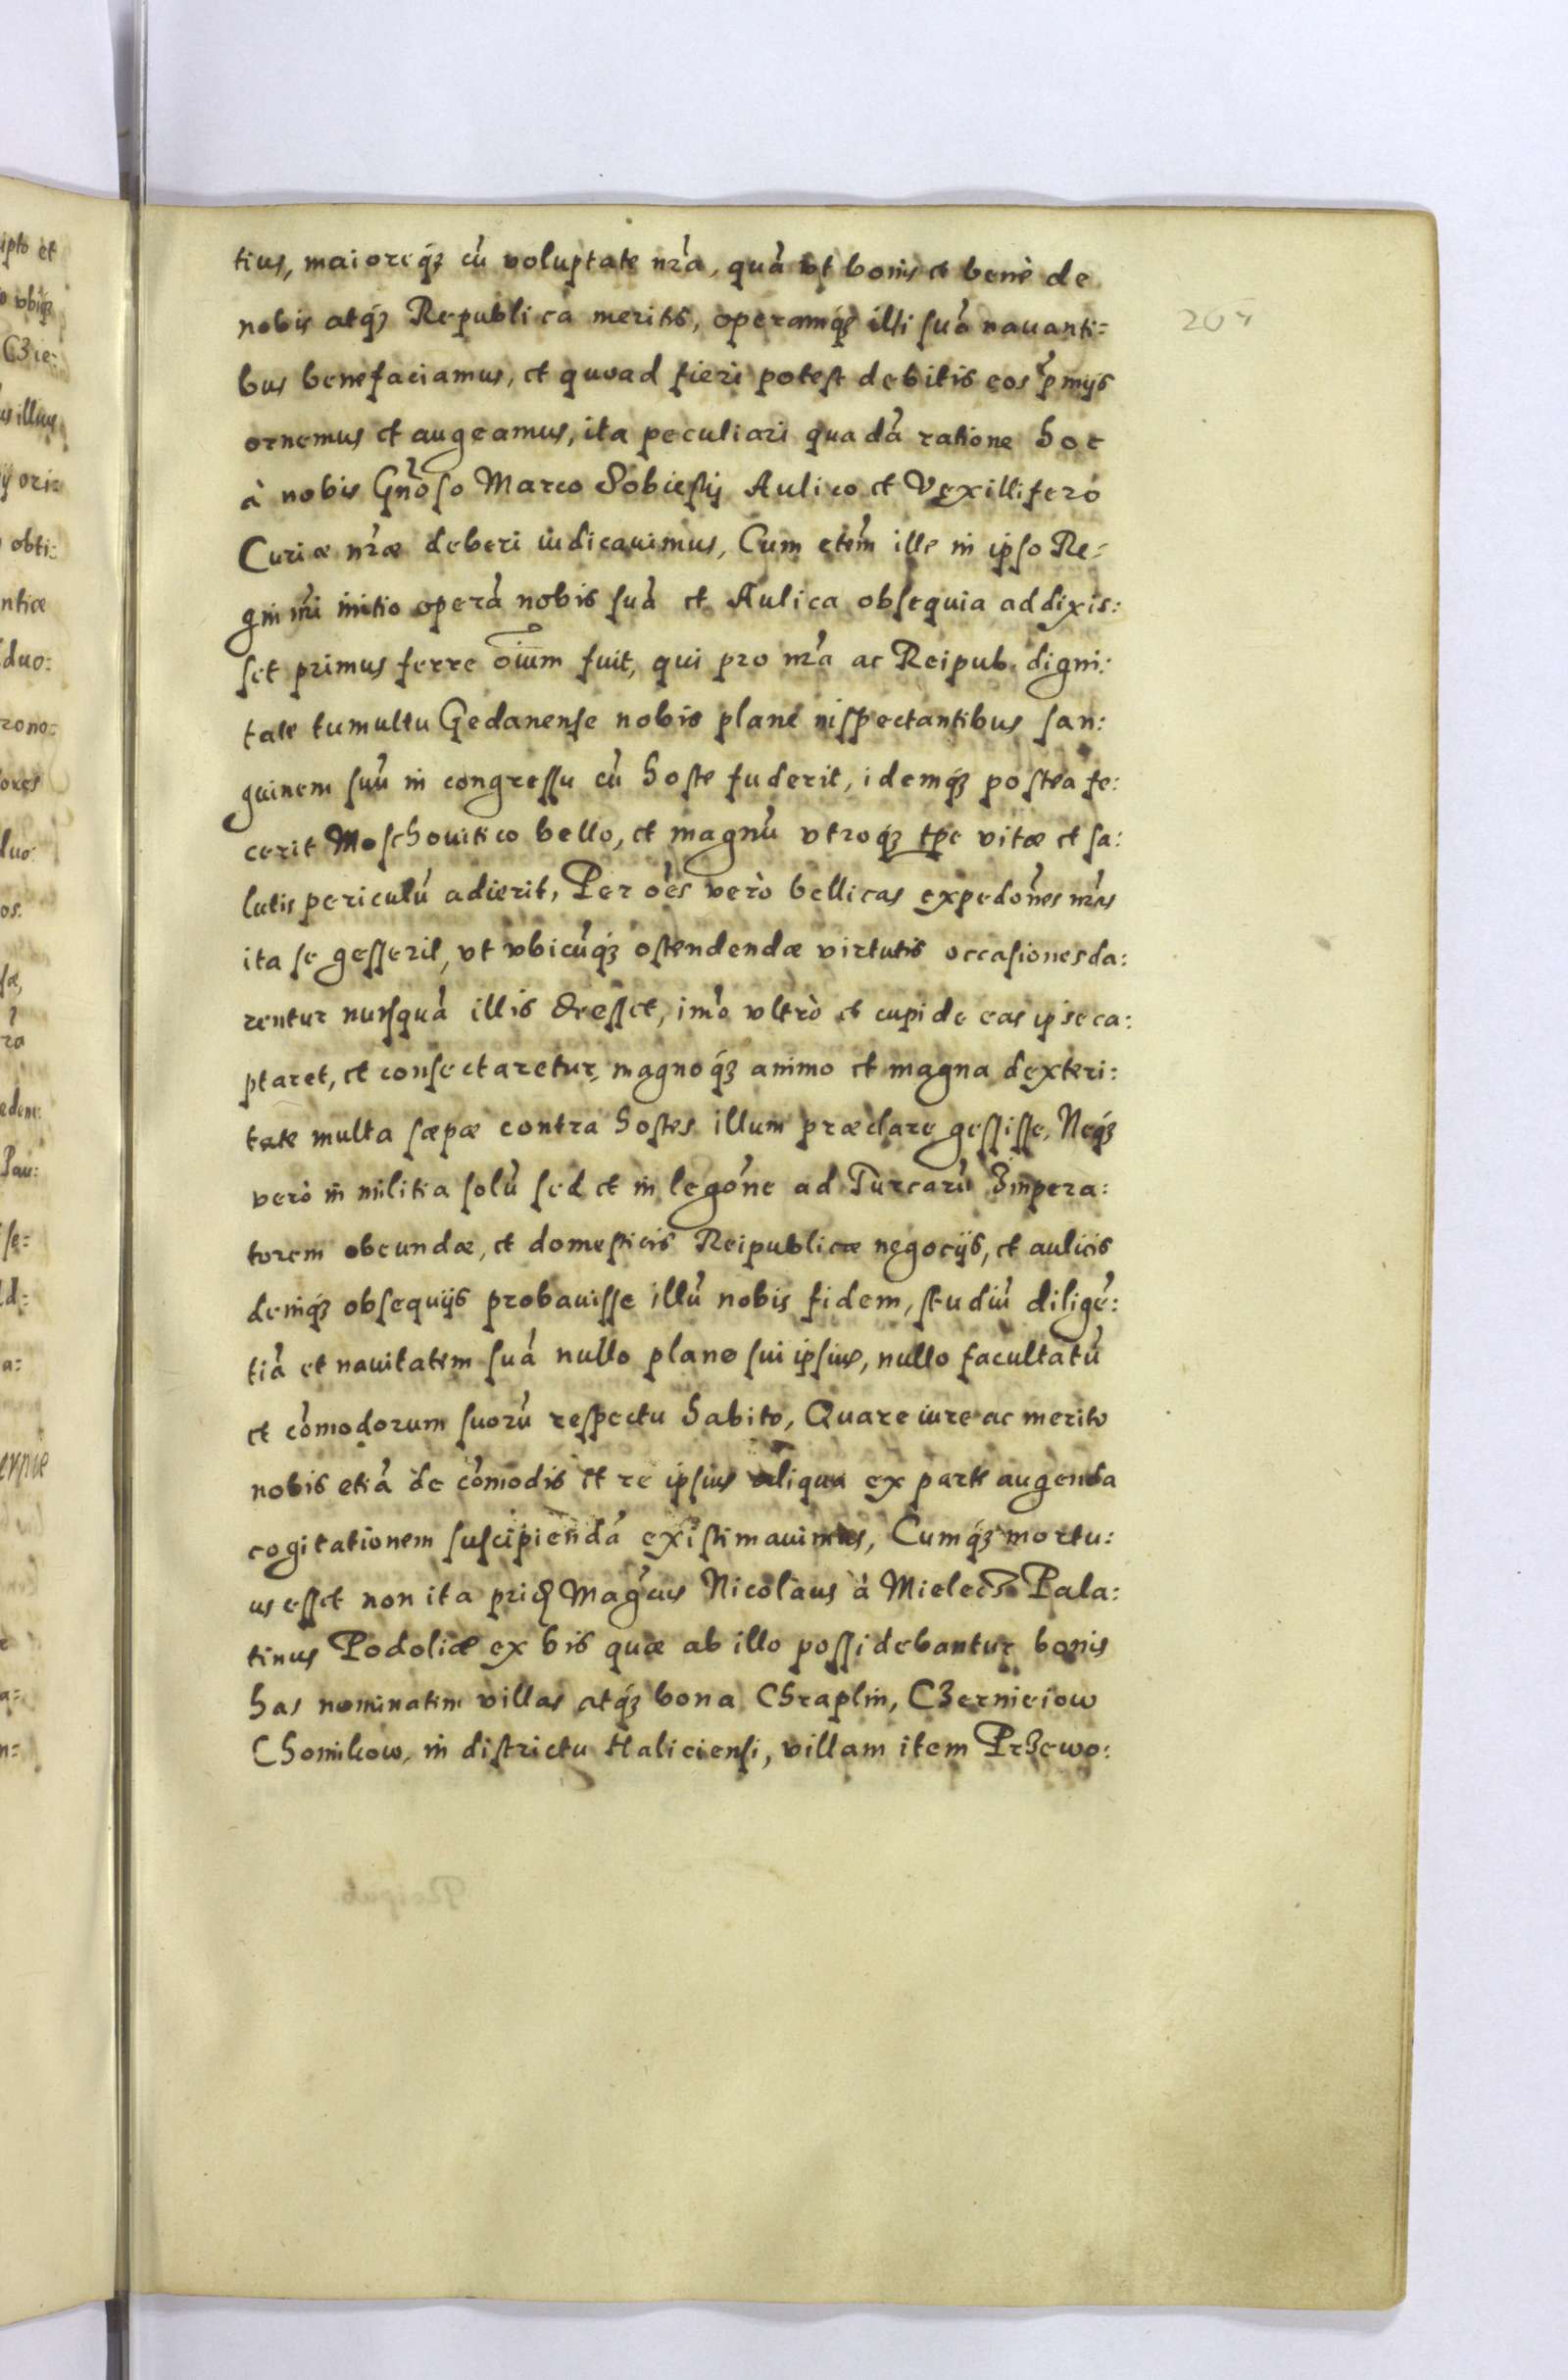 tius, maioreq́ꝫ cũ voluptate nrã, quã vt bonis et benè de
nobis atq́ꝫ Republica meritis, operamq́ꝫ illi suã nauanti=
bus benefaciamus, et quoad fieri potest debitis eos p̃mijs
ornemus et augeamus, ita peculiari quadã ratione hoc
à nobis Gñoso Marco Sobieskij Aulico et Vexillifero
Curiæ nrãe deberi iudicauimus, Cum eteñ ille in ipso Re=
gni nri initio operã nobis suã et Aulica obsequia addixis:
set primus ferre oĩum fuit, qui pro nrã ac Reipub. digni:
tate tumultu Gedanense nobis planè inspectantibus san:
guinem suũ in congressu cũ hoste fuderit, idemq́ꝫ postea fe:
cerit Moschouitico bello, et magnũ vtroq́ꝫ tp̃e vitæ et sa:
lutis periculũ adierit, Per oẽs verò bellicas expedoñes nrãs
ita se gesserit, vt vbicũq́ꝫ ostendendæ virtutis occasiones da:
rentur nusquã illis deesset, imõ vltrò et cupide eas ipse ca:
ptaret, et consectaretur, magnoq́ꝫ animo et magna dexteri:
tate multa sæpæ contra hostes illum præclare gessisse, Neq́ꝫ
verò in militia solũ sed et in legoñe ad Turcarũ Impera:
torem obeundæ, et domesticis Reipublicæ negocijs, et aulicis
deniq́ꝫ obsequijs probauisse illũ nobis fidem, studiũ diligẽ:
tiã et nauitatem suã nullo plane sui ipsius, nullo facultatũ
et cõmodorum suorũ respectu habito, Quare iure ac merito
nobis etiã de cõmodis et re ipsius aliqua ex parte augenda
cogitationem suscipiendã existimauimus, Cumq́ꝫ mortu:
us esset non ita prid Magcus Nicolaus à Mielecz Pala:
tinus Podoliæ ex his quæ ab illo possidebantur bonis
has nominatim villas atq́ꝫ bona Chraplin, Czernieiow
Chomikow, in districtu Haliciensi, villam item Przewo: